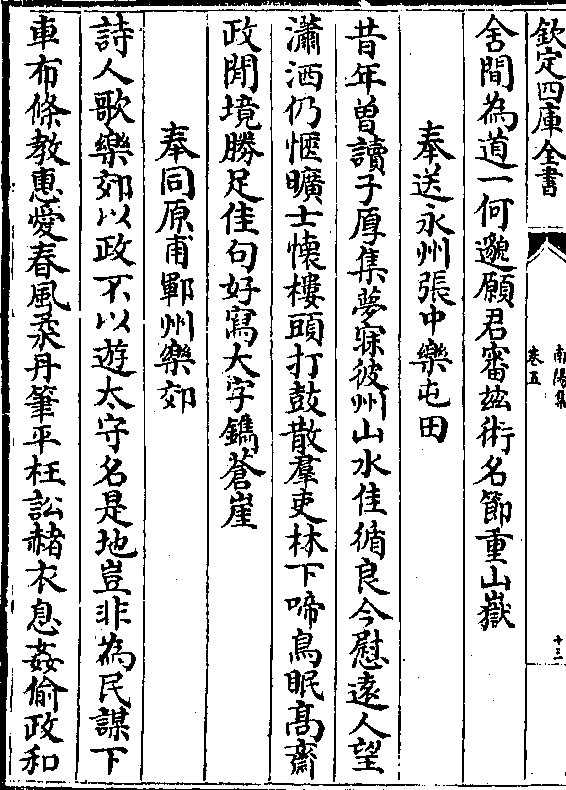 欽定四庫全書
南陽集
卷五
十三
舍間為道一何邈願君審玆術名節重山嶽
奉送永州張中樂屯田
昔年曽讀子厚集夢寐彼州山水佳循良今慰逺人望
瀟洒仍愜曠士懐樓頭打鼓散羣吏林下啼鳥眠髙齋
政閒境勝足佳句好寫大字鐫蒼崖
奉同原甫鄆州樂郊
詩人歌樂郊以政不以遊太守名是地豈非為民謀下
車布條教惠愛春風柔丹筆平枉訟赭衣息姦偷政和